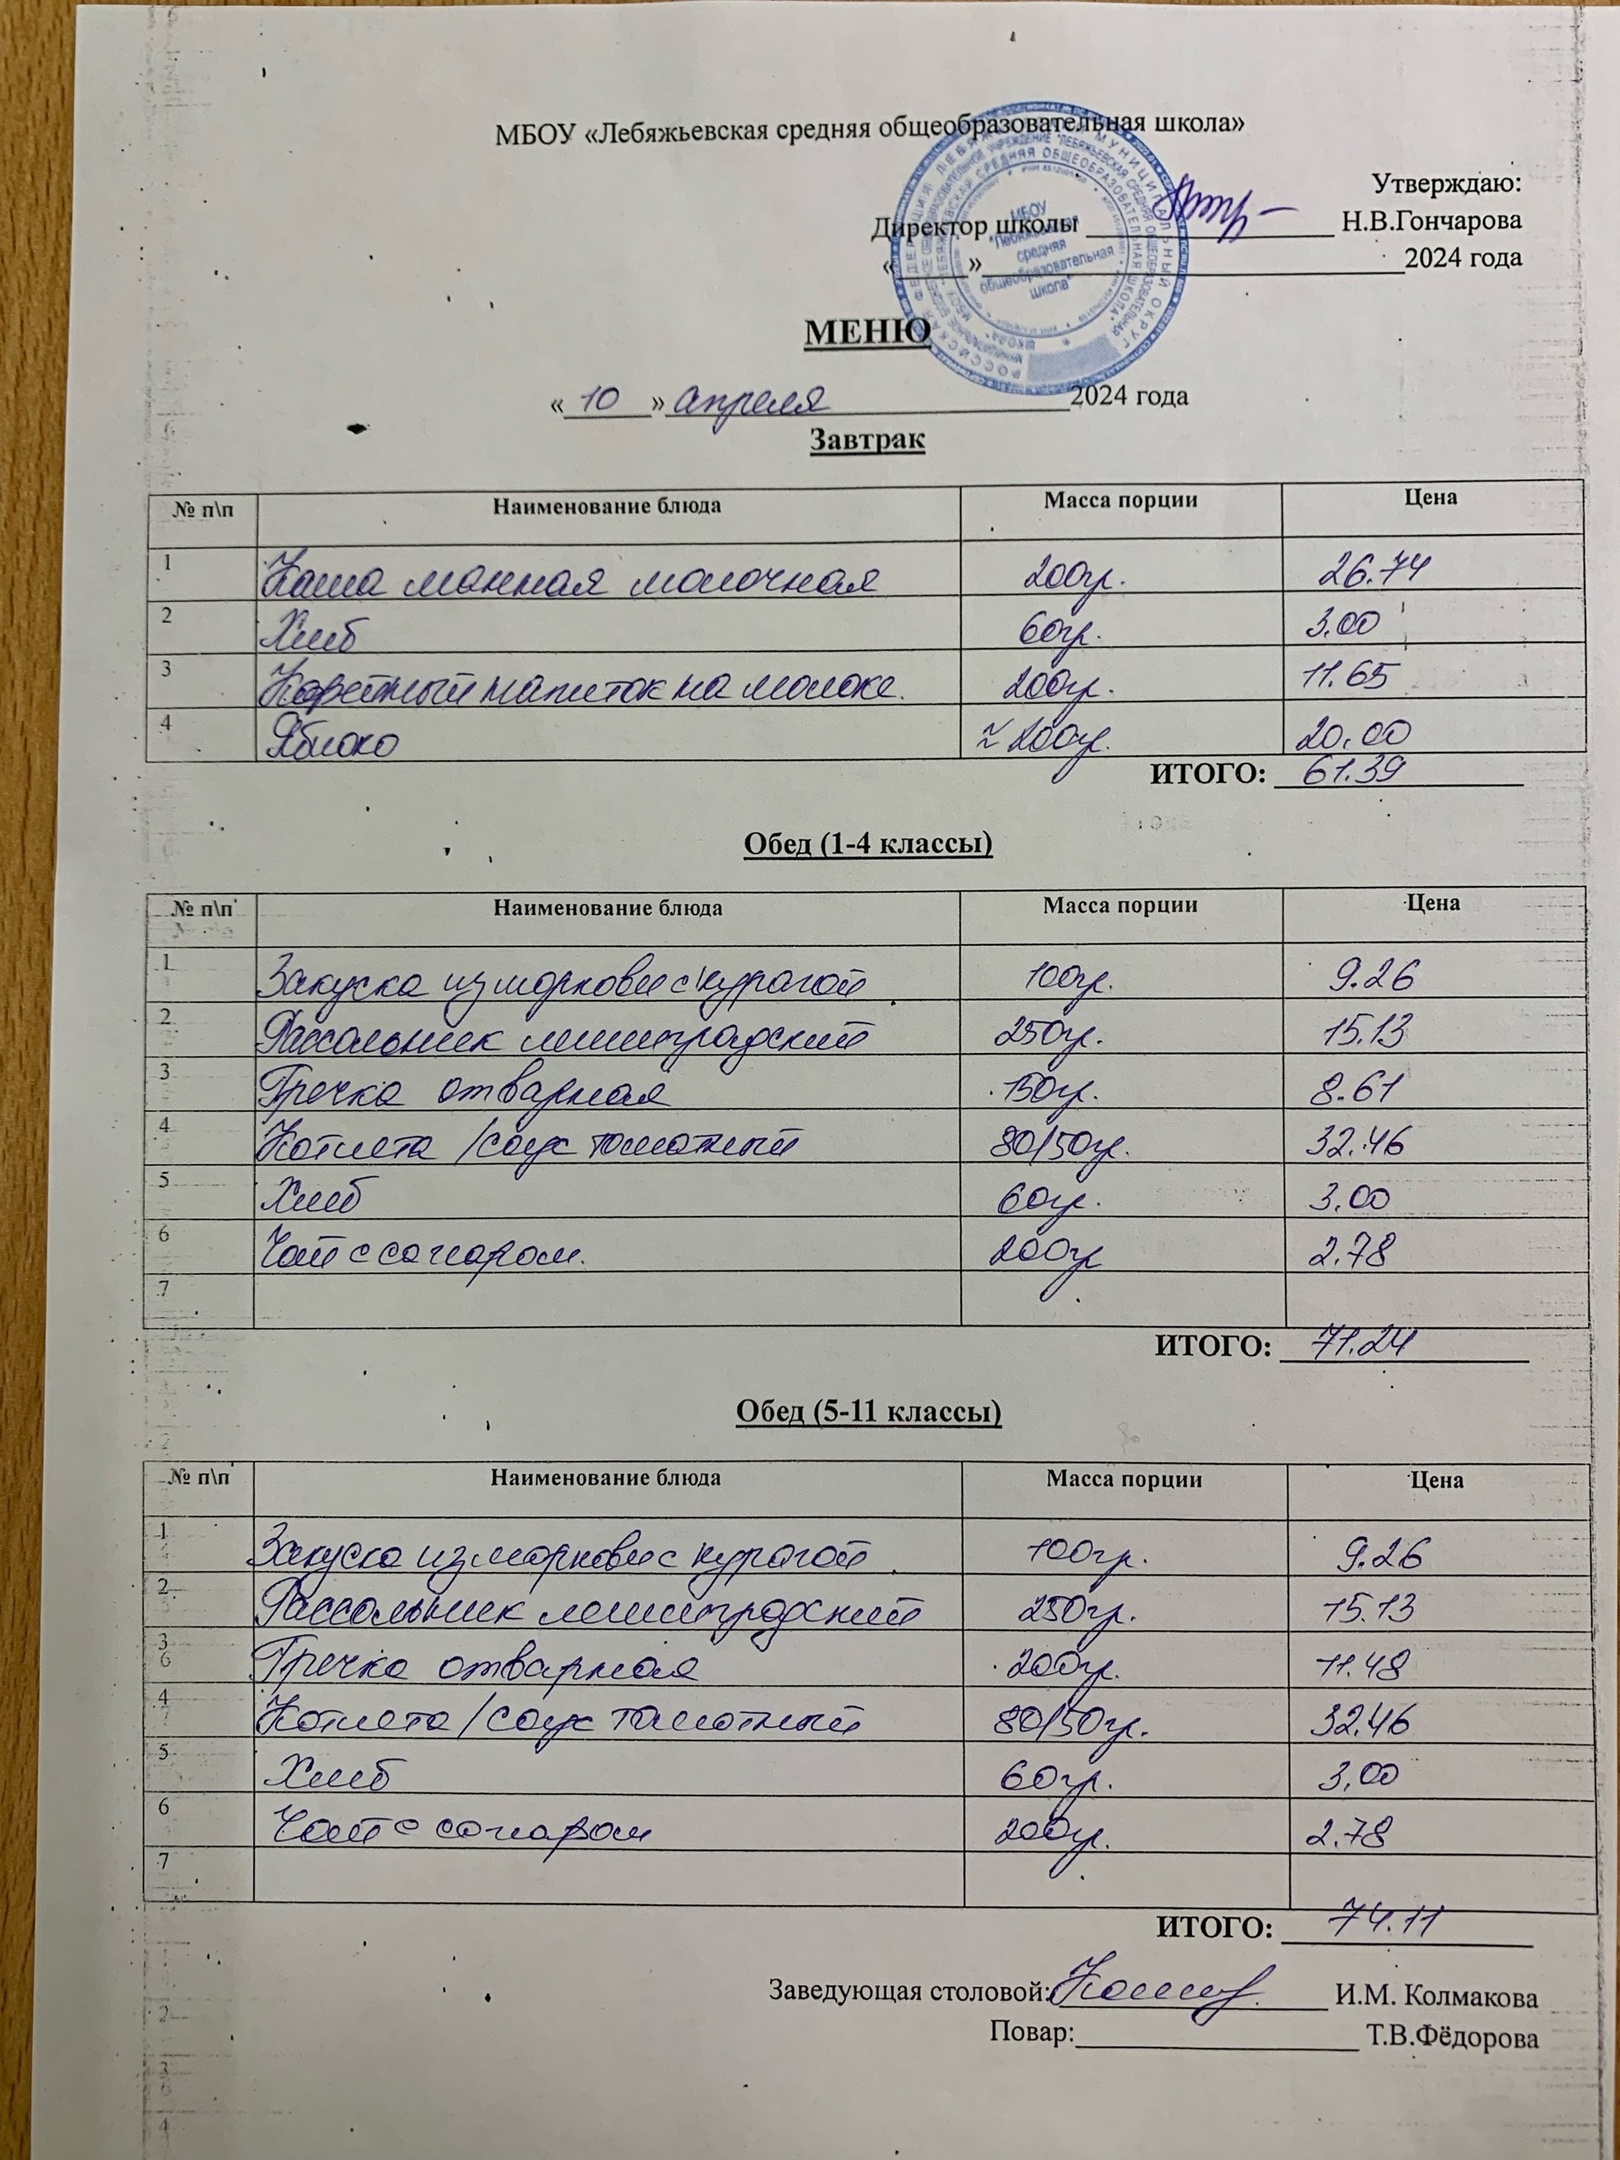 МБОУ «Лебяжьевская средняя общеобразовательная школа»
Утверждаю:
Директор школы ____________ Н.В.Гончарова
«_____»____________________2024 года
МБОУ
"Лебяжьевская
средняя
общеобразовательная
школа"
МЕНЮ
« 10 » апреля 2024 года
Завтрак
№ п\п Наименование блюда Масса порции Цена
1 Каша манная молочная 200гр. 26.74
2 Хлеб 60гр. 3.00
3 Кофейный напиток на молоке. 200гр. 11.65
4 Яблоко ≈ 200гр. 20.00
ИТОГО: 61.39
Обед (1-4 классы)
№ п\п Наименование блюда Масса порции Цена
1 Закуска из моркови с курагой 100гр. 9.26
2 Рассольник ленинградский 250гр. 15.13
3 Гречка отварная 150гр. 8.61
4 Котлета /соус томатный 80/50гр. 32.46
5 Хлеб 60гр. 3.00
6 Чай с сахаром. 200гр 2.78
7
ИТОГО: 71.24
Обед (5-11 классы)
№ п\п Наименование блюда Масса порции Цена
1 Закуска из моркови с курагой 100гр. 9.26
2 Рассольник ленинградский 250гр. 15.13
3 Гречка отварная 200гр. 11.48
4 Котлета /соус томатный 80/50гр. 32.46
5 Хлеб 60гр. 3.00
6 Чай с сахаром 200гр. 2.78
7
ИТОГО: 74.11
Заведующая столовой: ____________ И.М. Колмакова
Повар:____________ Т.В.Фёдорова